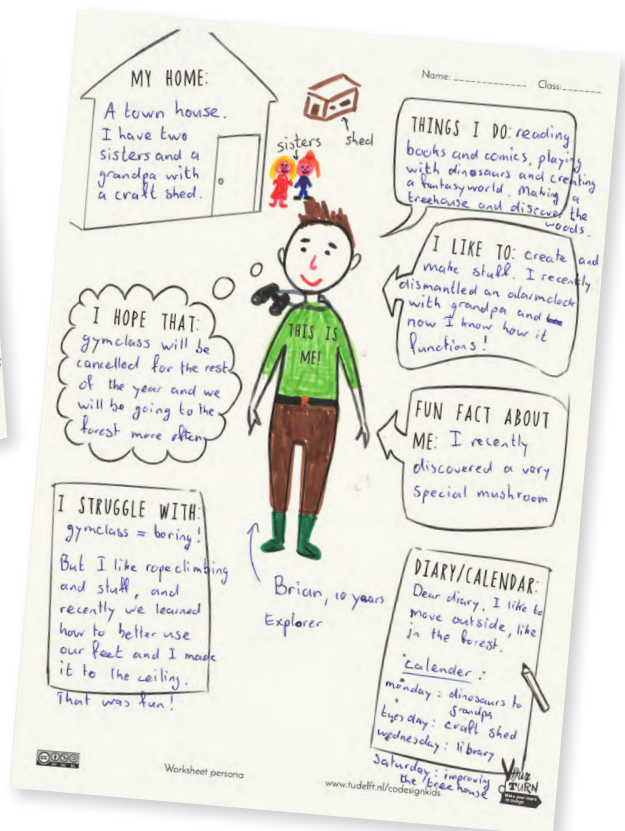 Name: Class:
MY HOME:
A town house.
I have two
sisters and a
grandpa with
a craft shed.
sisters
shed
THINGS I DO: reading
books and comics, playing
with dinosaurs and creating
a fantasyworld. Making a
treehouse and discover the
woods.
I LIKE TO: create and
make stuff. I recently
dismantled an alarmclock
with grandpa and
now I know how it
functions!
I HOPE THAT:
gymclass will be
cancelled for the rest
of the year and we
will be going to the
forest more often
THIS IS
ME!
FUN FACT ABOUT
ME: I recently
discovered a very
special mushroom
I STRUGGLE WITH:
gymclass = boring!
But I like ropeclimbing
and stuff, and
recently we learned
how to better use
our feet and I made
it to the ceiling.
That was fun!
Brian, 10 years
Explorer
DIARY/CALENDAR:
Dear diary, I like to
move outside, like
in the forest.
calender:
monday: dinosaurs to
grandpa
tuesday: craft shed
wednesday: library
Saturday: improving
the treehouse
Worksheet persona
www.tudelft.nl/codesignkids
Your
TURN